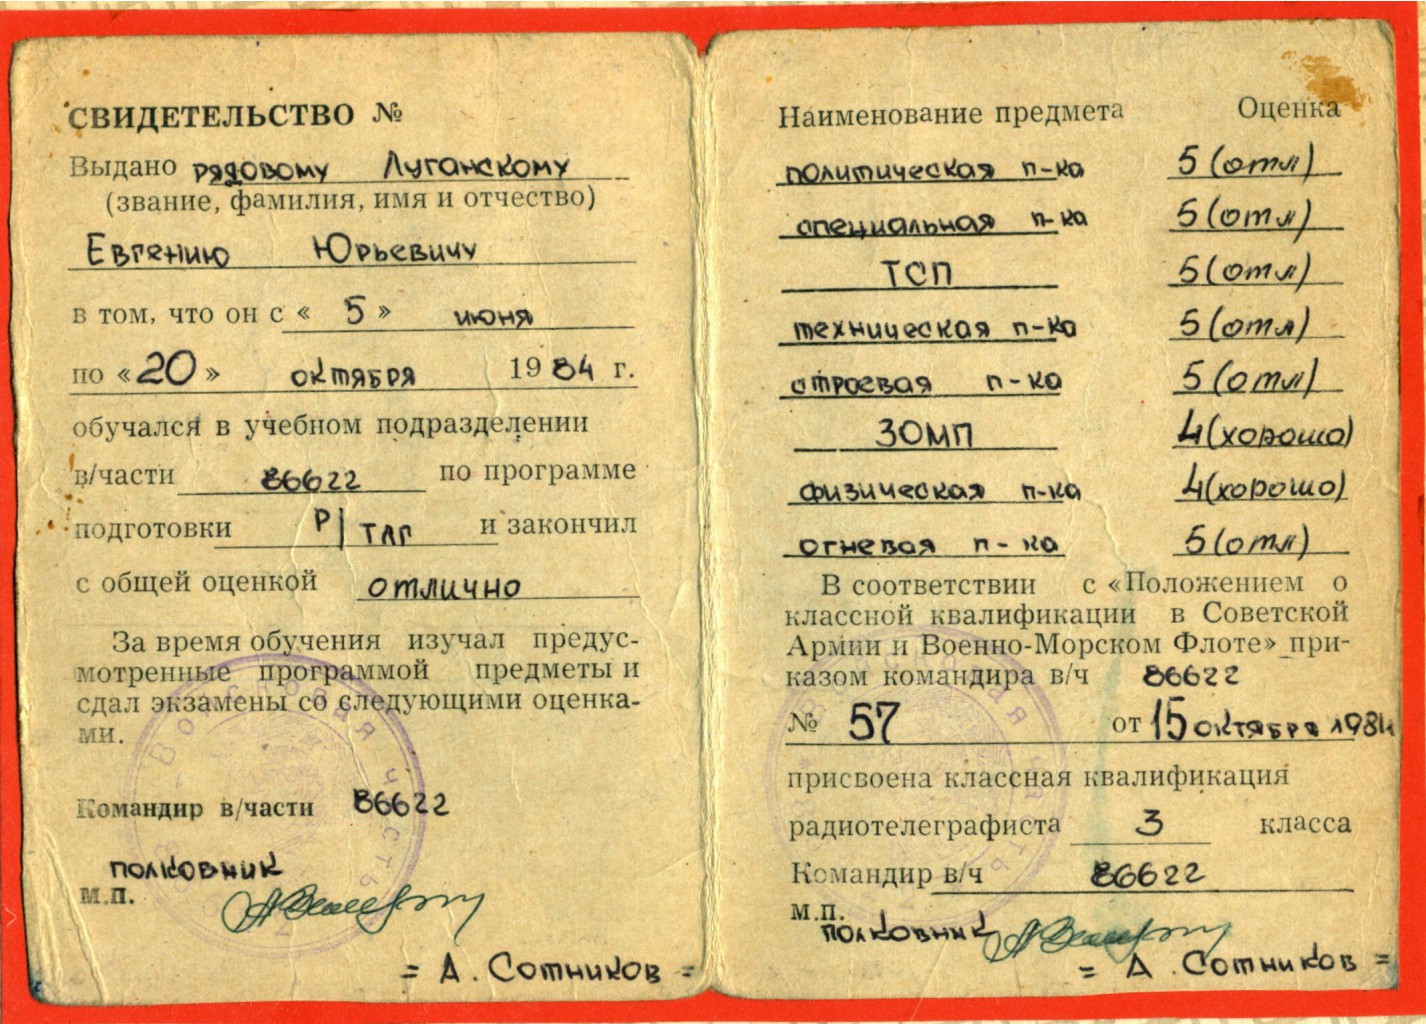 СВИДЕТЕЛЬСТВО №
Выдано рядовому Луганскому
(звание, фамилия, имя и отчество)
Евгению Юрьевичу
в том, что он с « 5 » июня
по «20» октября 1984 г.
обучался в учебном подразделении
в/части 86622 по программе
подготовки Р/ТЛГ и закончил
с общей оценкой отлично
За время обучения изучал предус-
мотренные программой предметы и
сдал экзамены со следующими оценка-
ми.
Командир в/части 86622
полковник
м.п.
= А. Сотников =
Наименование предмета Оценка
политическая п-ка 5 (отл)
специальная п-ка 5 (отл)
ТСП 5 (отл)
техническая п-ка 5 (отл)
строевая п-ка 5 (отл)
ЗОМП 4 (хорошо)
физическая п-ка 4 (хорошо)
огневая п-ка 5 (отл)
В соответствии с «Положением о
классной квалификации в Советской
Армии и Военно-Морском Флоте» при-
казом командира в/ч 86622
№ 57 от 15 октября 1984
присвоена классная квалификация
радиотелеграфиста 3 класса
Командир в/ч 86622
м.п.
полковник
= А. Сотников =